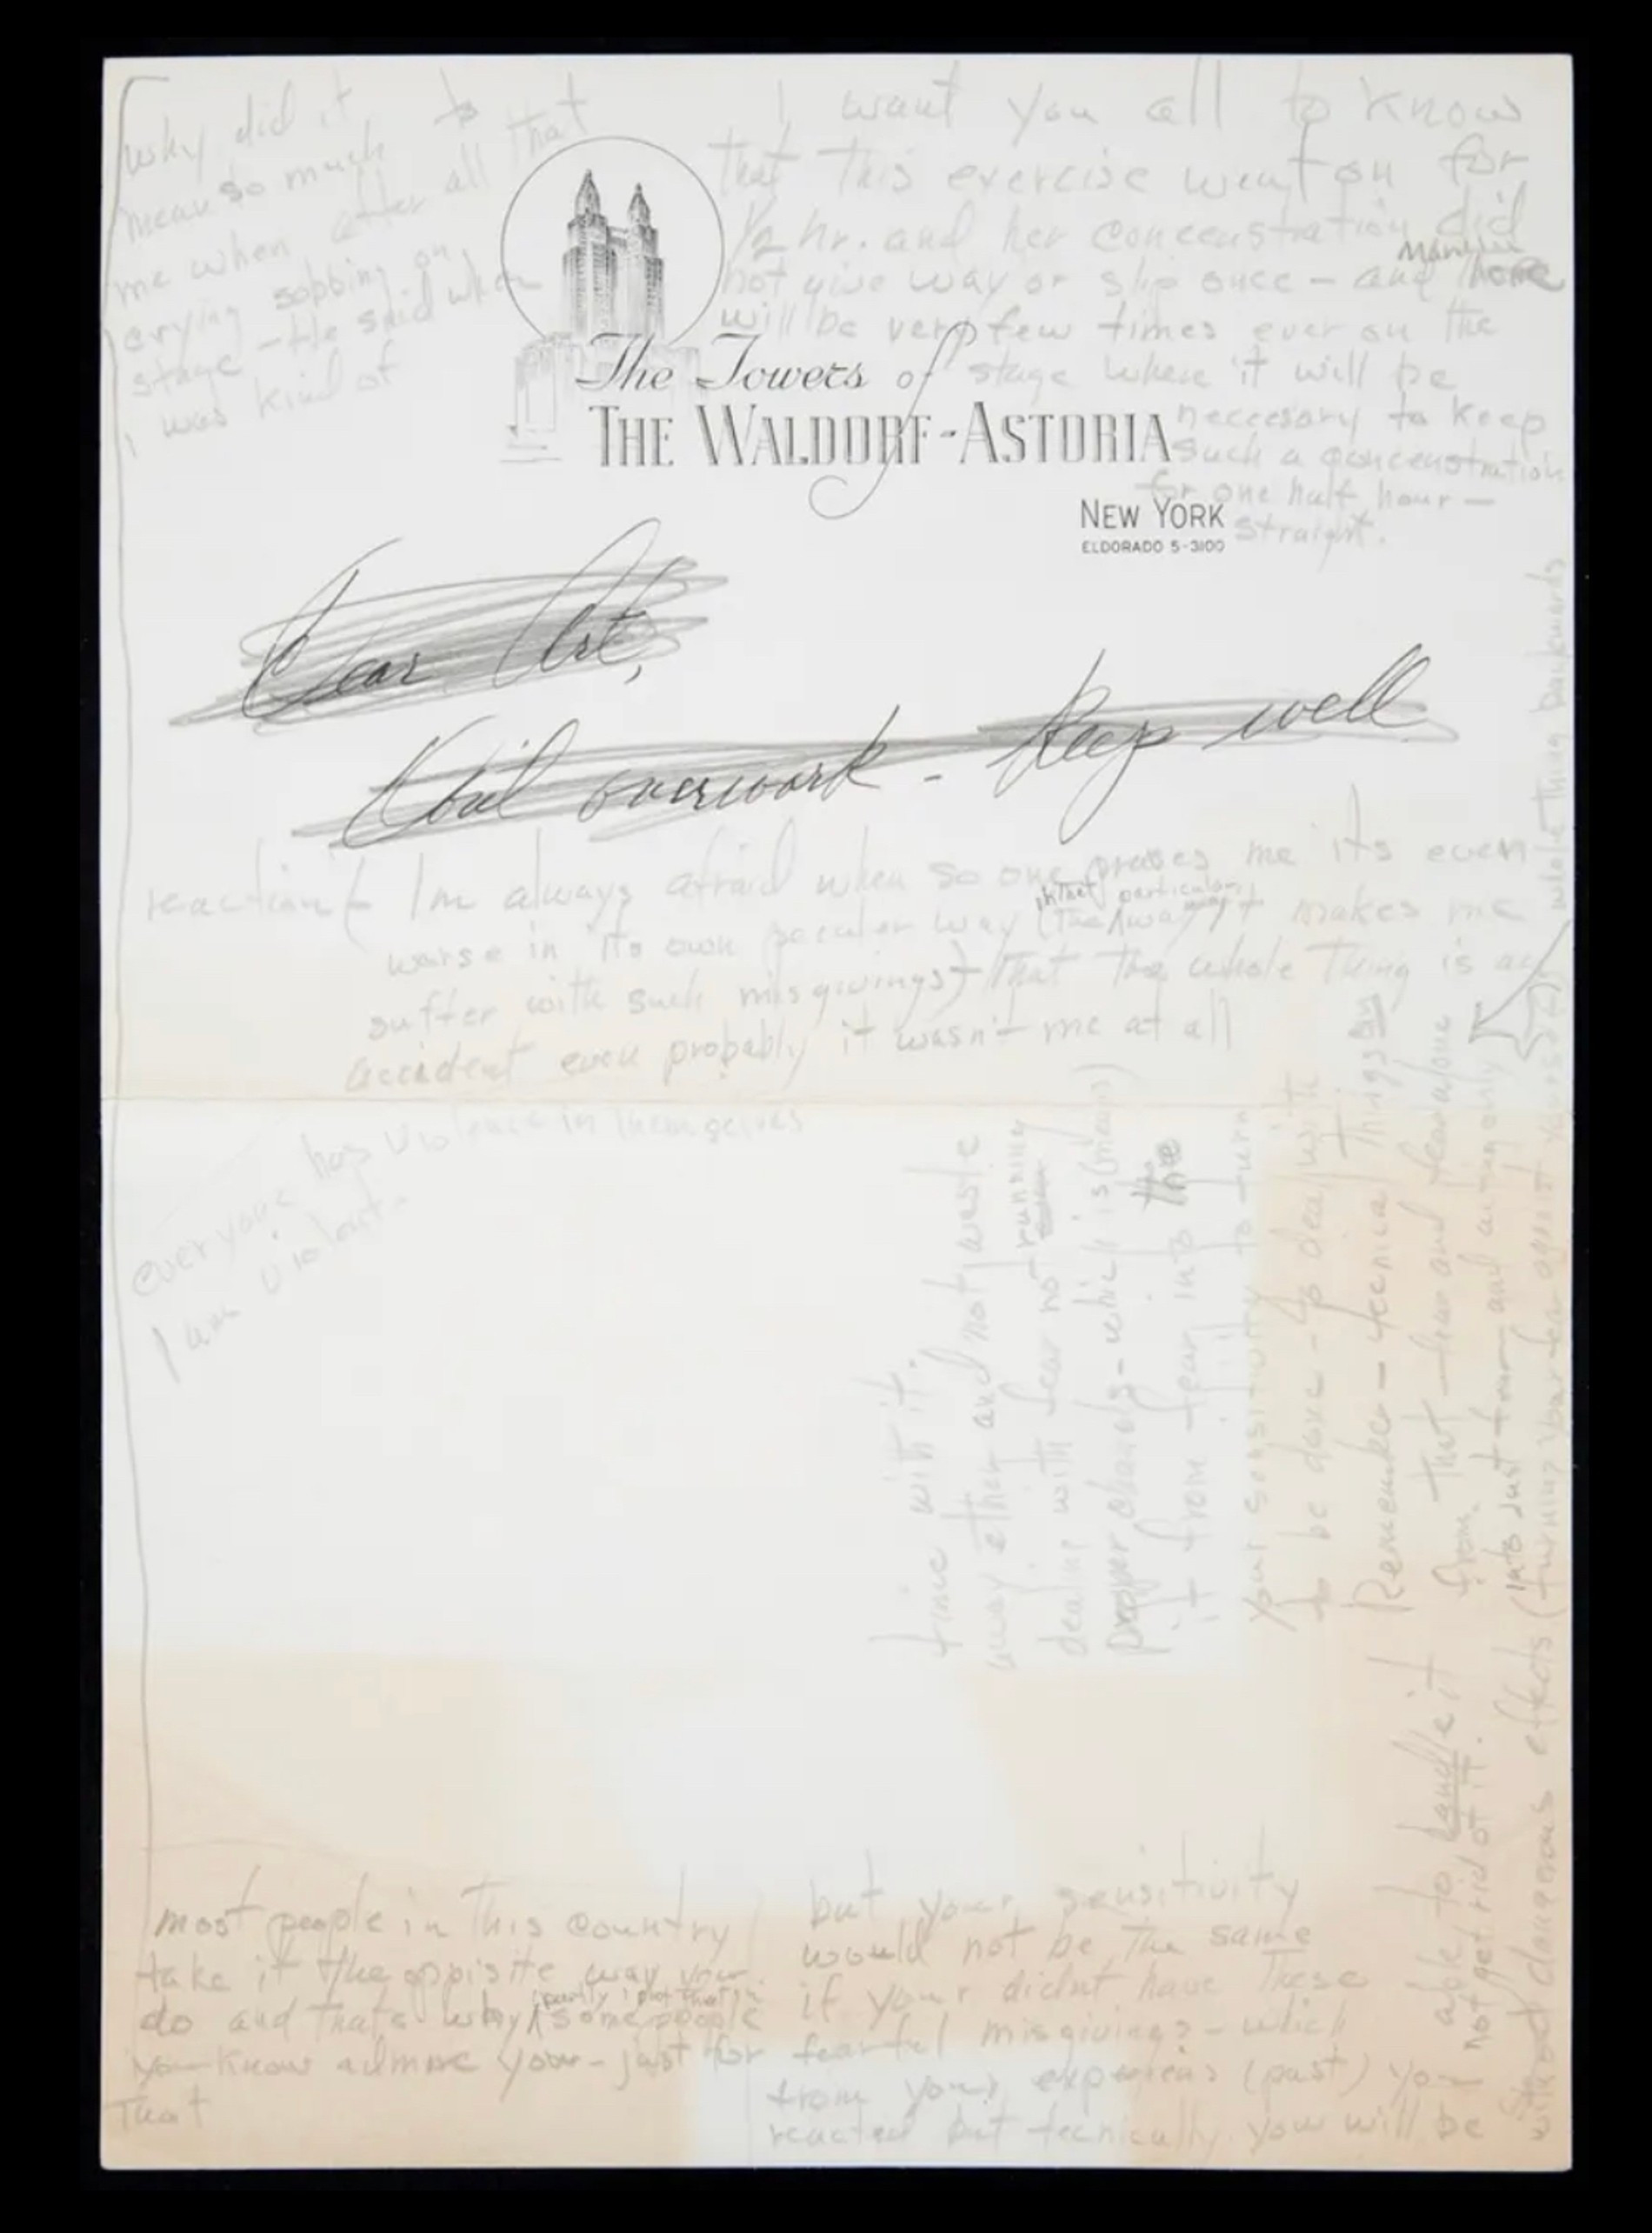 why did it to
mean so much that
me when after all
crying sobbing on
stage – He said when
I was kind of
I want you all to know
that this exercise went on for
½ hr. and her concenstration did
not give way or slip once – and there
will be very few times ever on the
stage where it will be
neccesary to keep
such a concenstration
for one half hour –
straight.
The Towers of
THE WALDORF-ASTORIA
NEW YORK
ELDORADO 5-3100
Dear Art,
overwork – Keep well
reaction – I'm always afraid when so one prases me its even
in that particular
worse in its own peculer way (The way) it makes me
suffer with such misgivings) that the whole thing is an
accident even probably it wasn't me at all
everyone has violence in themselves
I am violent.
most people in this country
take it the oppisite way your
partly
do and thats why some people
you know admire your – just for
That
but your sensitivity
would not be the same
if your didnt have these
fearful misgivings – which
from your experiens (past) you
reacted but tecnically you will be
able to handle it
not get rid of it.
without dangerous effects (turning your fear against yourself) whole thing backwards
into just fear – and acting only
from that – fear and fear alone
Remember – tecnical things
to be done – to deal with
your sensitivity to turn
it from fear into the
proper channels – which is (means)
dealing with fear not running
away ether and not waste
time with it.